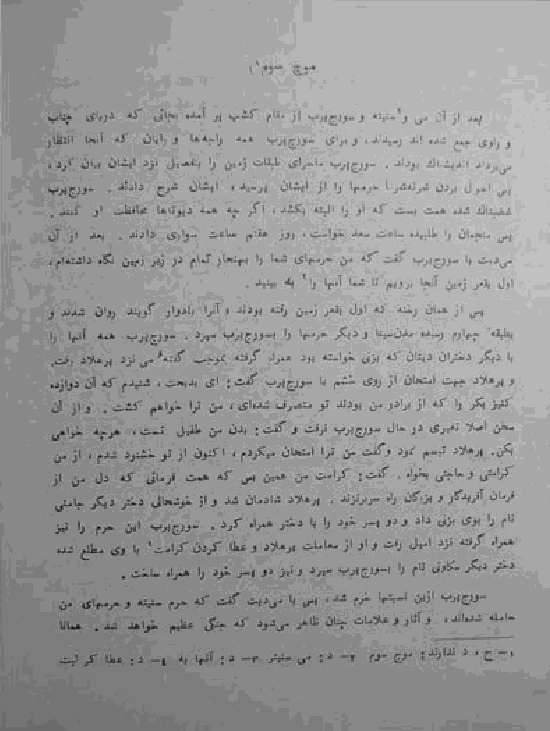 موج سوم۱
بعد از آن می و سنیته و سورج‌پرب از مقام کشپ بر آمده بجائی که دربای چناب
و راوی جمع شده اند رسیدند، و برای سورج‌پرب همه راجه‌ها و رایان که آنجا انتظار
می‌بردند اندیشناك بودند. سورج‌پرب ماجرای طبقات زمین را بتفصیل نزد ایشان بیان کرد،
پس احوال بردن حرمها را از ایشان پرسید، ایشان شرح دادند. سورج‌پرب
غضبناك شده همت بست که او را البته بکشد، اگر چه همه دیوتاها محافظت او کنند.
پس منجمان را طلبیده ساعت سعد خواست، روز هفتم ساعت سواری دادند. بعد از آن
می‌دیت با سورج‌پرب گفت که من حرمهای شما را بهنجار تمام در زیر زمین نگاه داشته‌ام،
اول بقعر زمین آنجا برویم تا شما آنها را۲ به بینید.
پس از همان رخنه که اول بقعر زمین رفته بودند و آنرا بادوار گویند روان شدند و
بطبقه چهارم رسیده مدن‌سینا و دیگر حرمها را بسورج‌پرب سپرد. سورج‌پرب همه آنها را
با دیگر دختران دیتان که بزنی خواسته بود همراه گرفته بموجب گفته می نزد پرهلاد رفت.
و پرهلاد جهت امتحان از روی خشم با سورج‌پرب گفت: ای بدبخت، شنیدم که آن دوازده
کنیز بکر را که از برادر من بودند تو متصرف شده‌ای، من ترا خواهم کشت. و از آن
سخن اصلا تغیری در حال سورج‌پرب نرفت و گفت: بدن من طفیل تست، هرچه خواهی
بکن. پرهلاد تبسم نمود و گفت من ترا امتحان میکردم، اکنون از تو خشنود شدم، از من
کرامتی و حاجتی بخواه. گفت: کرامت من همین بس که همت فرمائی که دل من از
فرمان آفریدگار و بزرگان راه سربزنزند. پرهلاد شادمان شد و از خوشحالی دختر دیگر جامنی
نام را بوی بزنی داد و دو پسر خود را با دختر همراه کرد. سورج‌پرب این حرم را نیز
همراه گرفته نزد امیل رفت و او از معاملت پرهلاد و عطا کردن کرامت با وی مطلع شده
دختر دیگر نام را بسورج‌پرب سپرد و نیز دو پسر خود را همراه ساخت.
سورج‌پرب ازین نسبتها خرم شد، پس با می‌دیت گفت که حرم سنیته و حرمهای من
حامله شده‌اند، و آثار و علامات چنان ظاهر می‌شود که جنگی عظیم خواهد شد. همانا
۱ــ ح، د ندارند: موج سوم ۲ــ د: می سنیتر ۳ــ د: آنها به ٤ــ د: عطا کر لیت